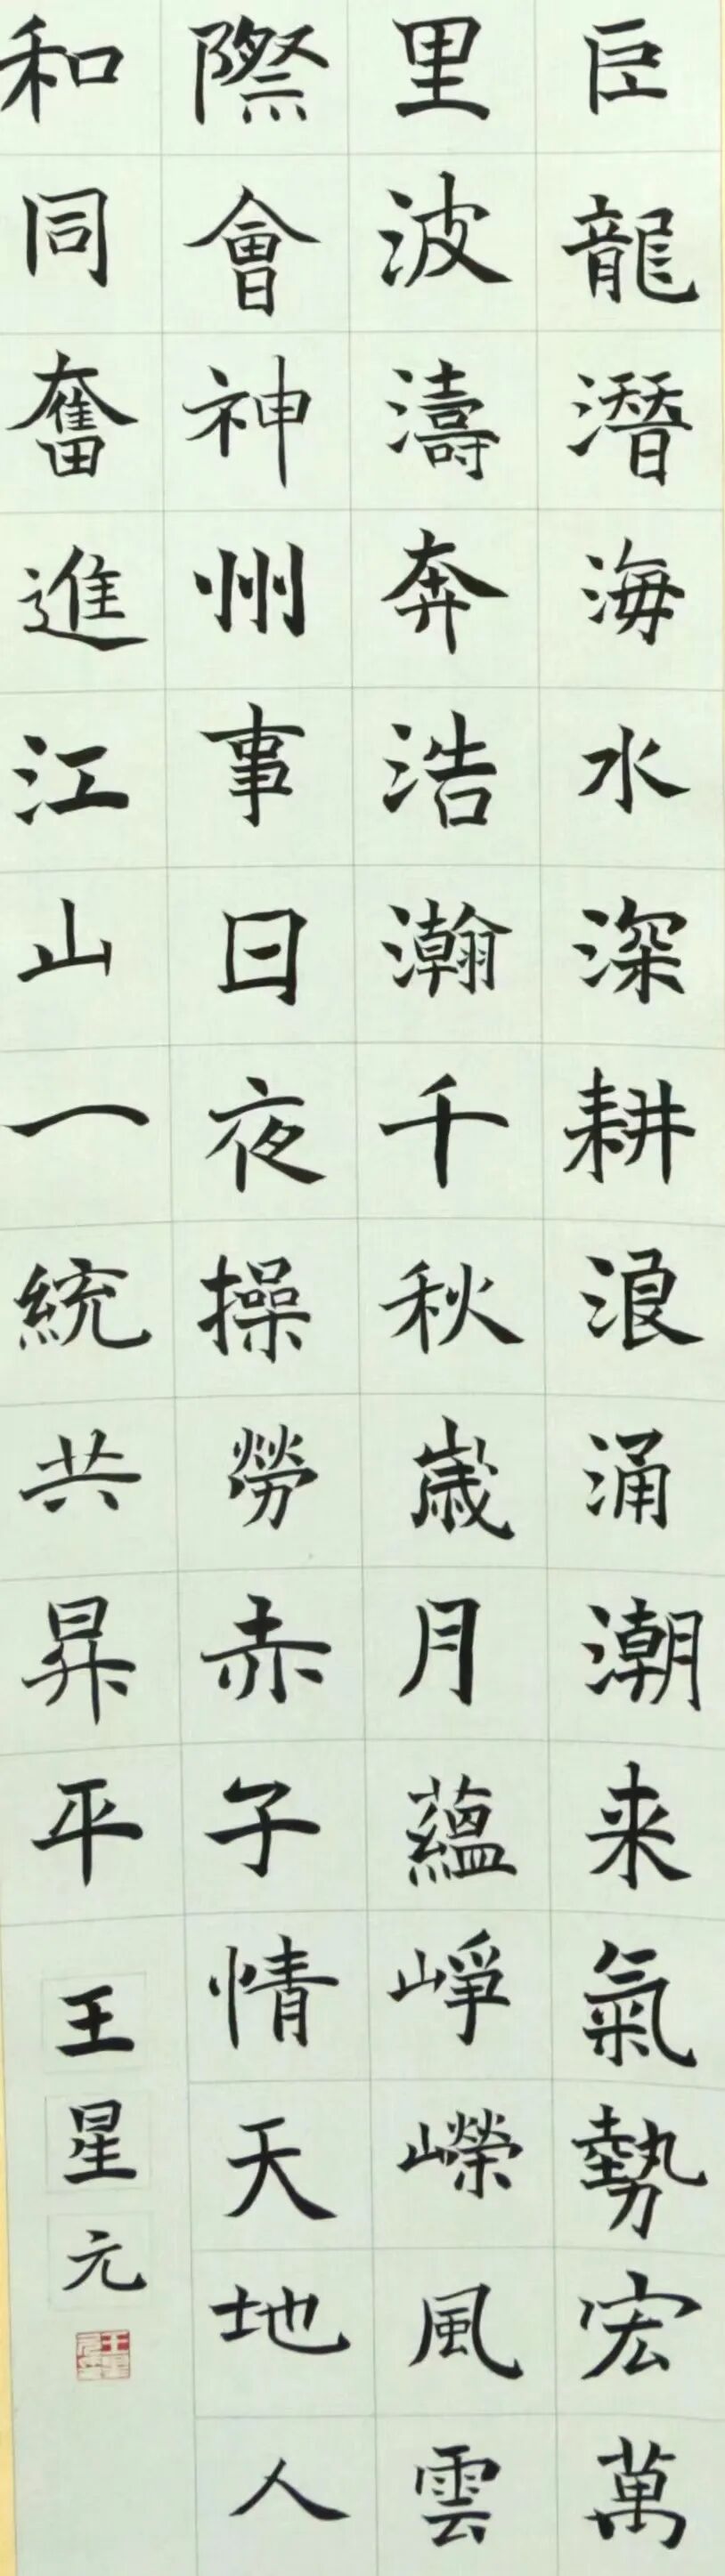 巨龍潜海水深耕浪涌潮来氣勢宏萬
里波濤奔浩瀚千秋歳月蘊崢嶸風雲
際會神州事日夜操勞赤子情天地人
和同奮進江山一統共昇平
王星元